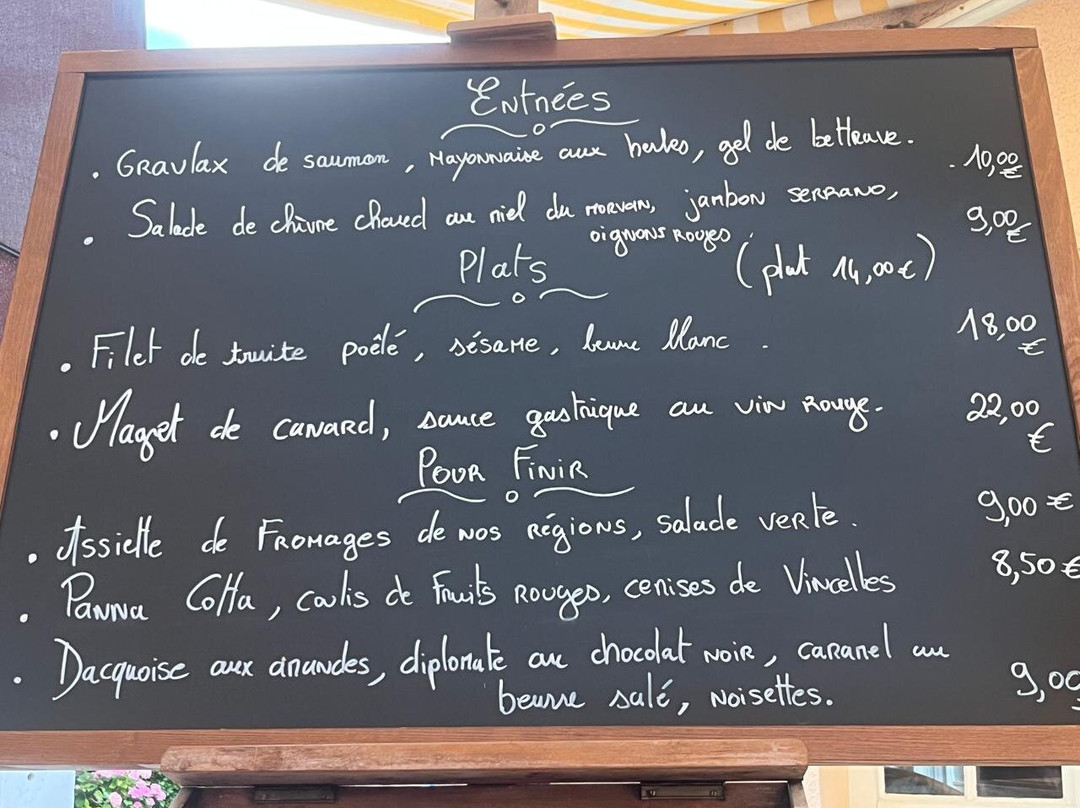 Entrées
. Gravlax de saumon, Mayonnaise aux herbes, gel de betterave. . 10,00 €
. Salade de chèvre chaud au miel du MORVAN, jambon SERRANO, 9,00 €
oignons Rouges
Plats (plat 14,00 €)
. Filet de truite poêlé, sésame, beurre blanc . 18,00 €
. Magret de canard, sauce gastrique au vin Rouge. 22,00 €
Pour Finir
. Assiette de Fromages de nos Régions, salade verte. 9,00 €
. Panna Cotta, coulis de Fruits Rouges, cerises de Vincelles 8,50 €
. Dacquoise aux amandes, diplomate au chocolat noir, caramel au 9,00
beurre salé, Noisettes.